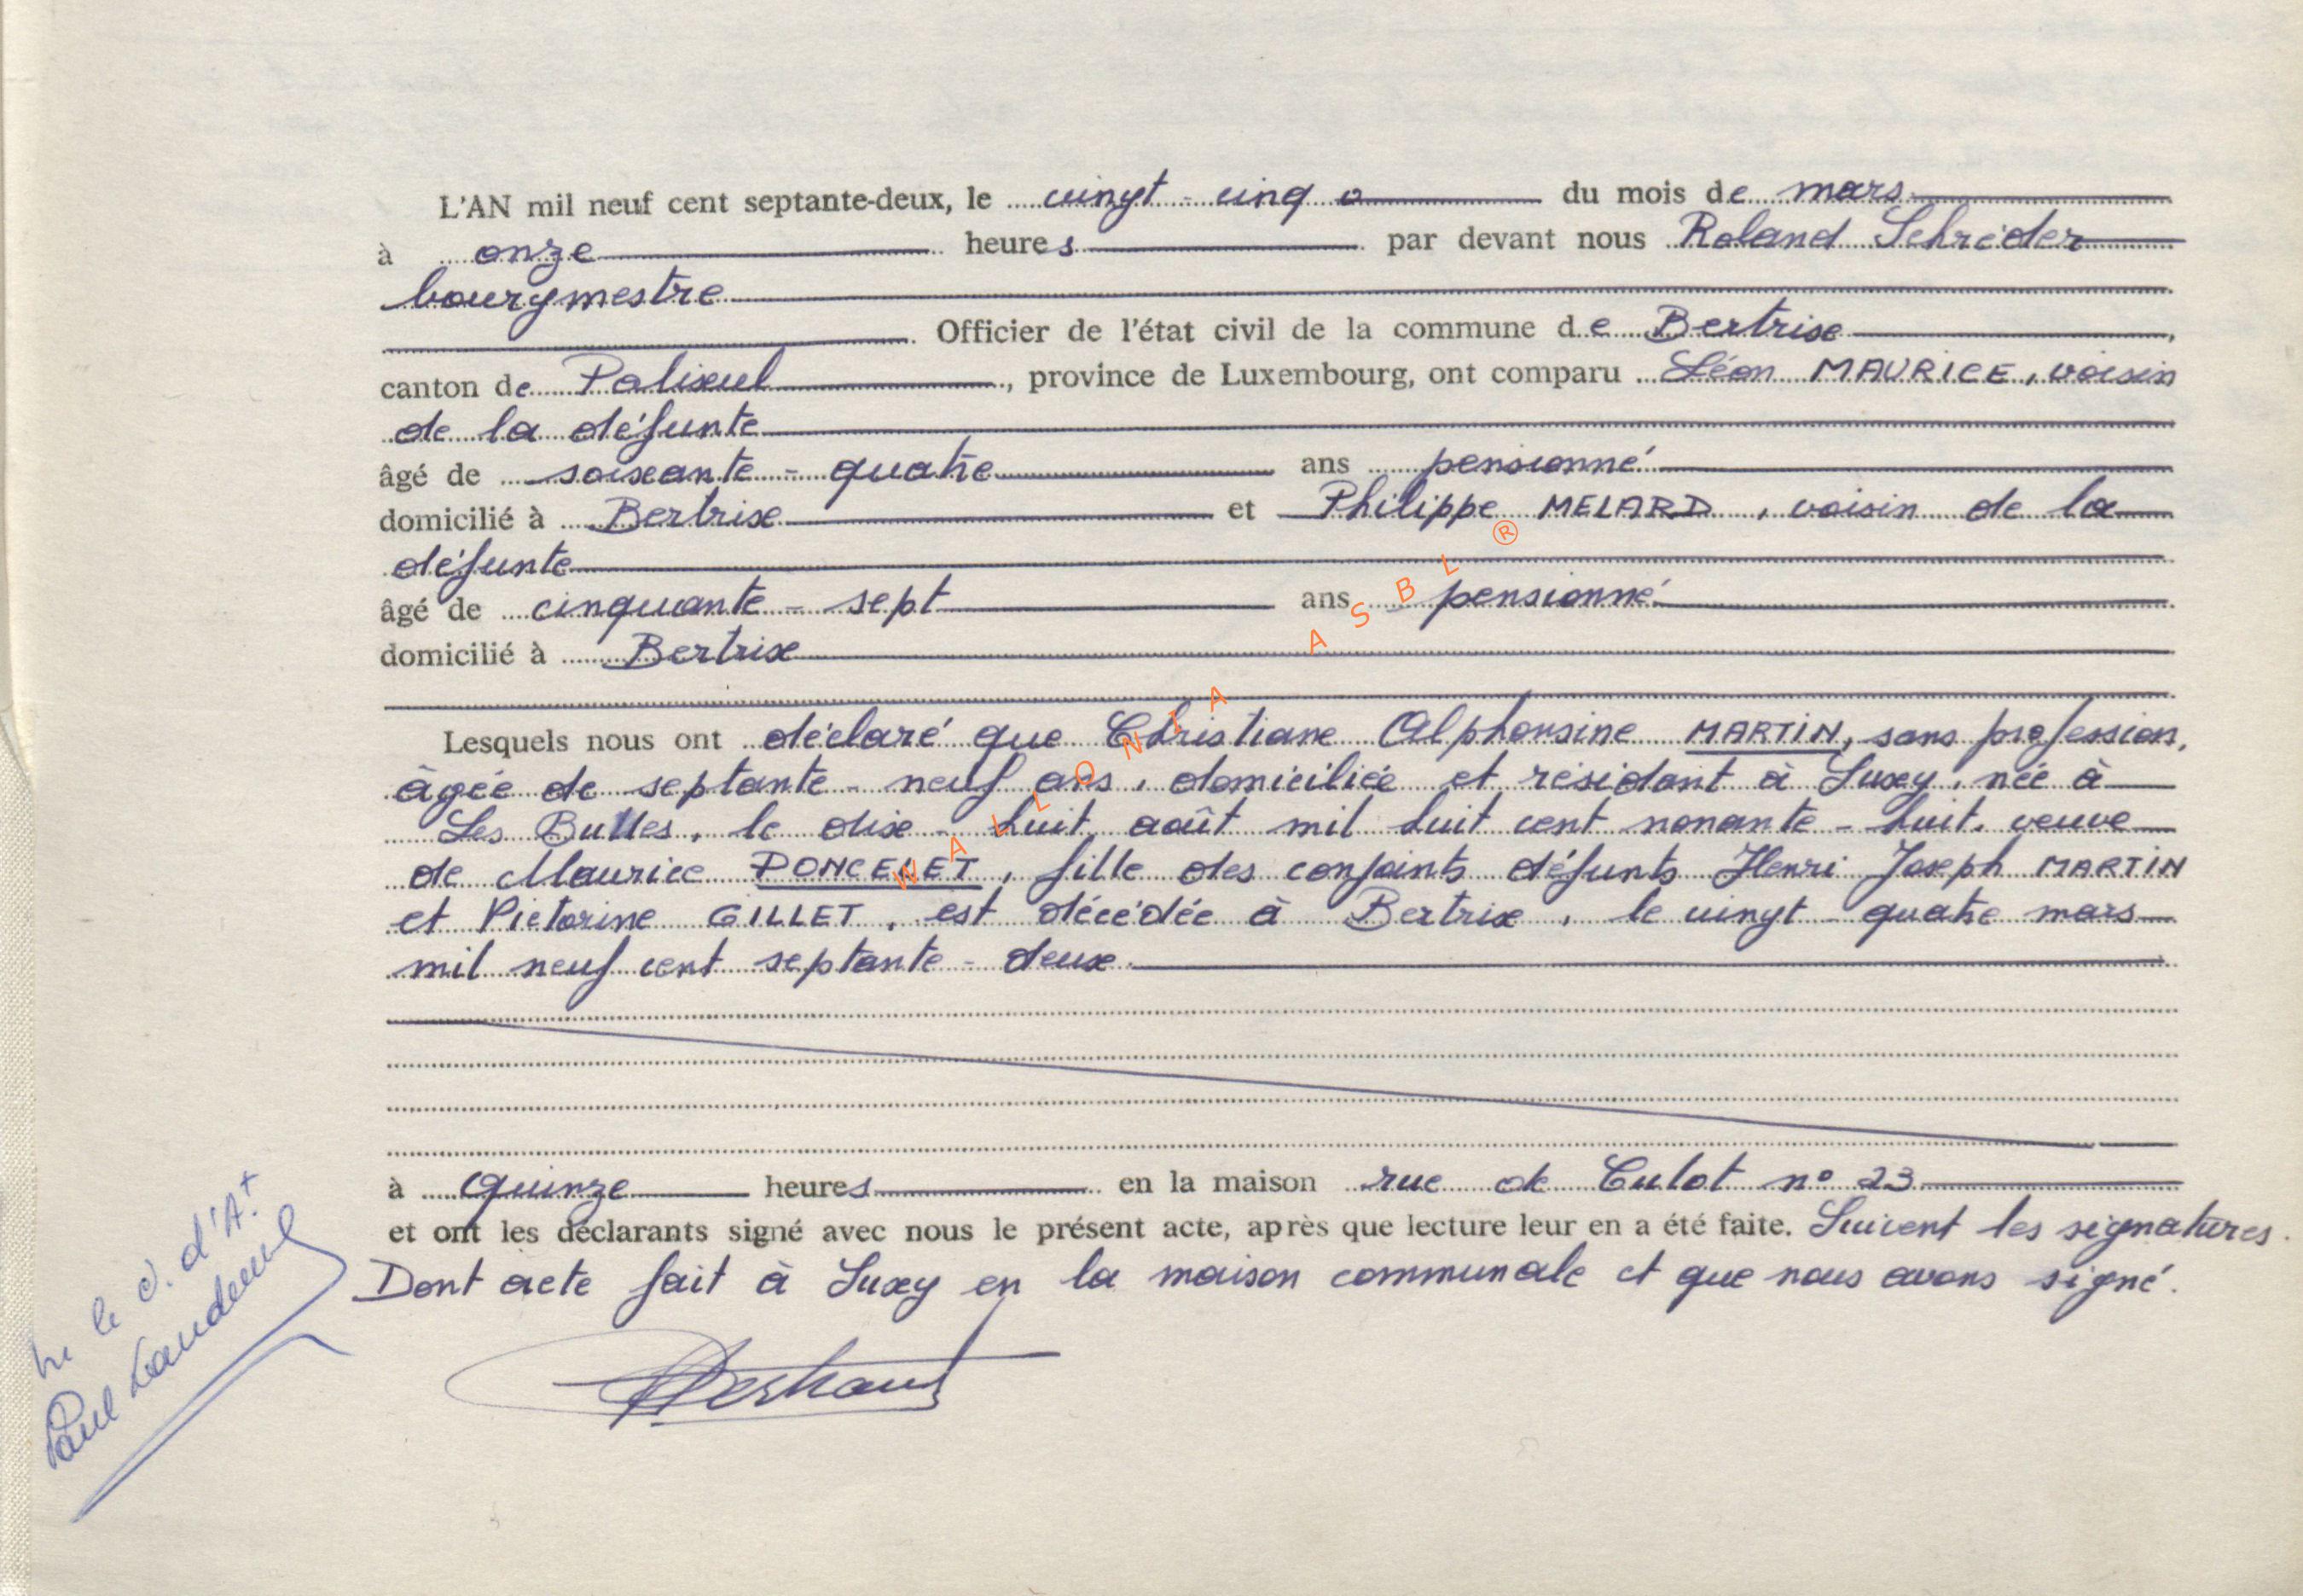 L'AN mil neuf cent septante-deux, le vingt-cinq du mois de mars
à onze heures par devant nous Roland Schréder
bourgmestre
Officier de l'état civil de la commune de Bertrix,
canton de Paliseul, province de Luxembourg, ont comparu Léon MAURICE, voisin
de la défunte
âgé de soixante-quatre ans pensionné
domicilié à Bertrix et Philippe MELARD, voisin de la
défunte
âgé de cinquante-sept ans pensionné
domicilié à Bertrix
Lesquels nous ont déclaré que Christiane Alphonsine MARTIN, sans profession,
âgée de septante-neuf ans, domiciliée et résidant à Suxy, née à
Les Bulles, le dix-huit août mil huit cent nonante-huit, veuve
de Maurice PONCELET, fille des conjoints défunts Henri Joseph MARTIN
et Victorine GILLET, est décédée à Bertrix, le vingt-quatre mars
mil neuf cent septante-deux.
à quinze heures en la maison rue de Culot n° 23
et ont les déclarants signé avec nous le présent acte, après que lecture leur en a été faite. Suivent les signatures.
Dont acte fait à Suxy en la maison communale et que nous avons signé.
WALLONIA ASBL ®